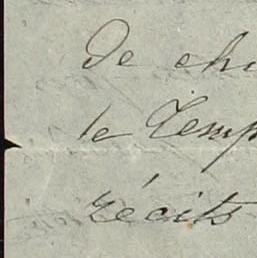 De chi
le Temp
récits